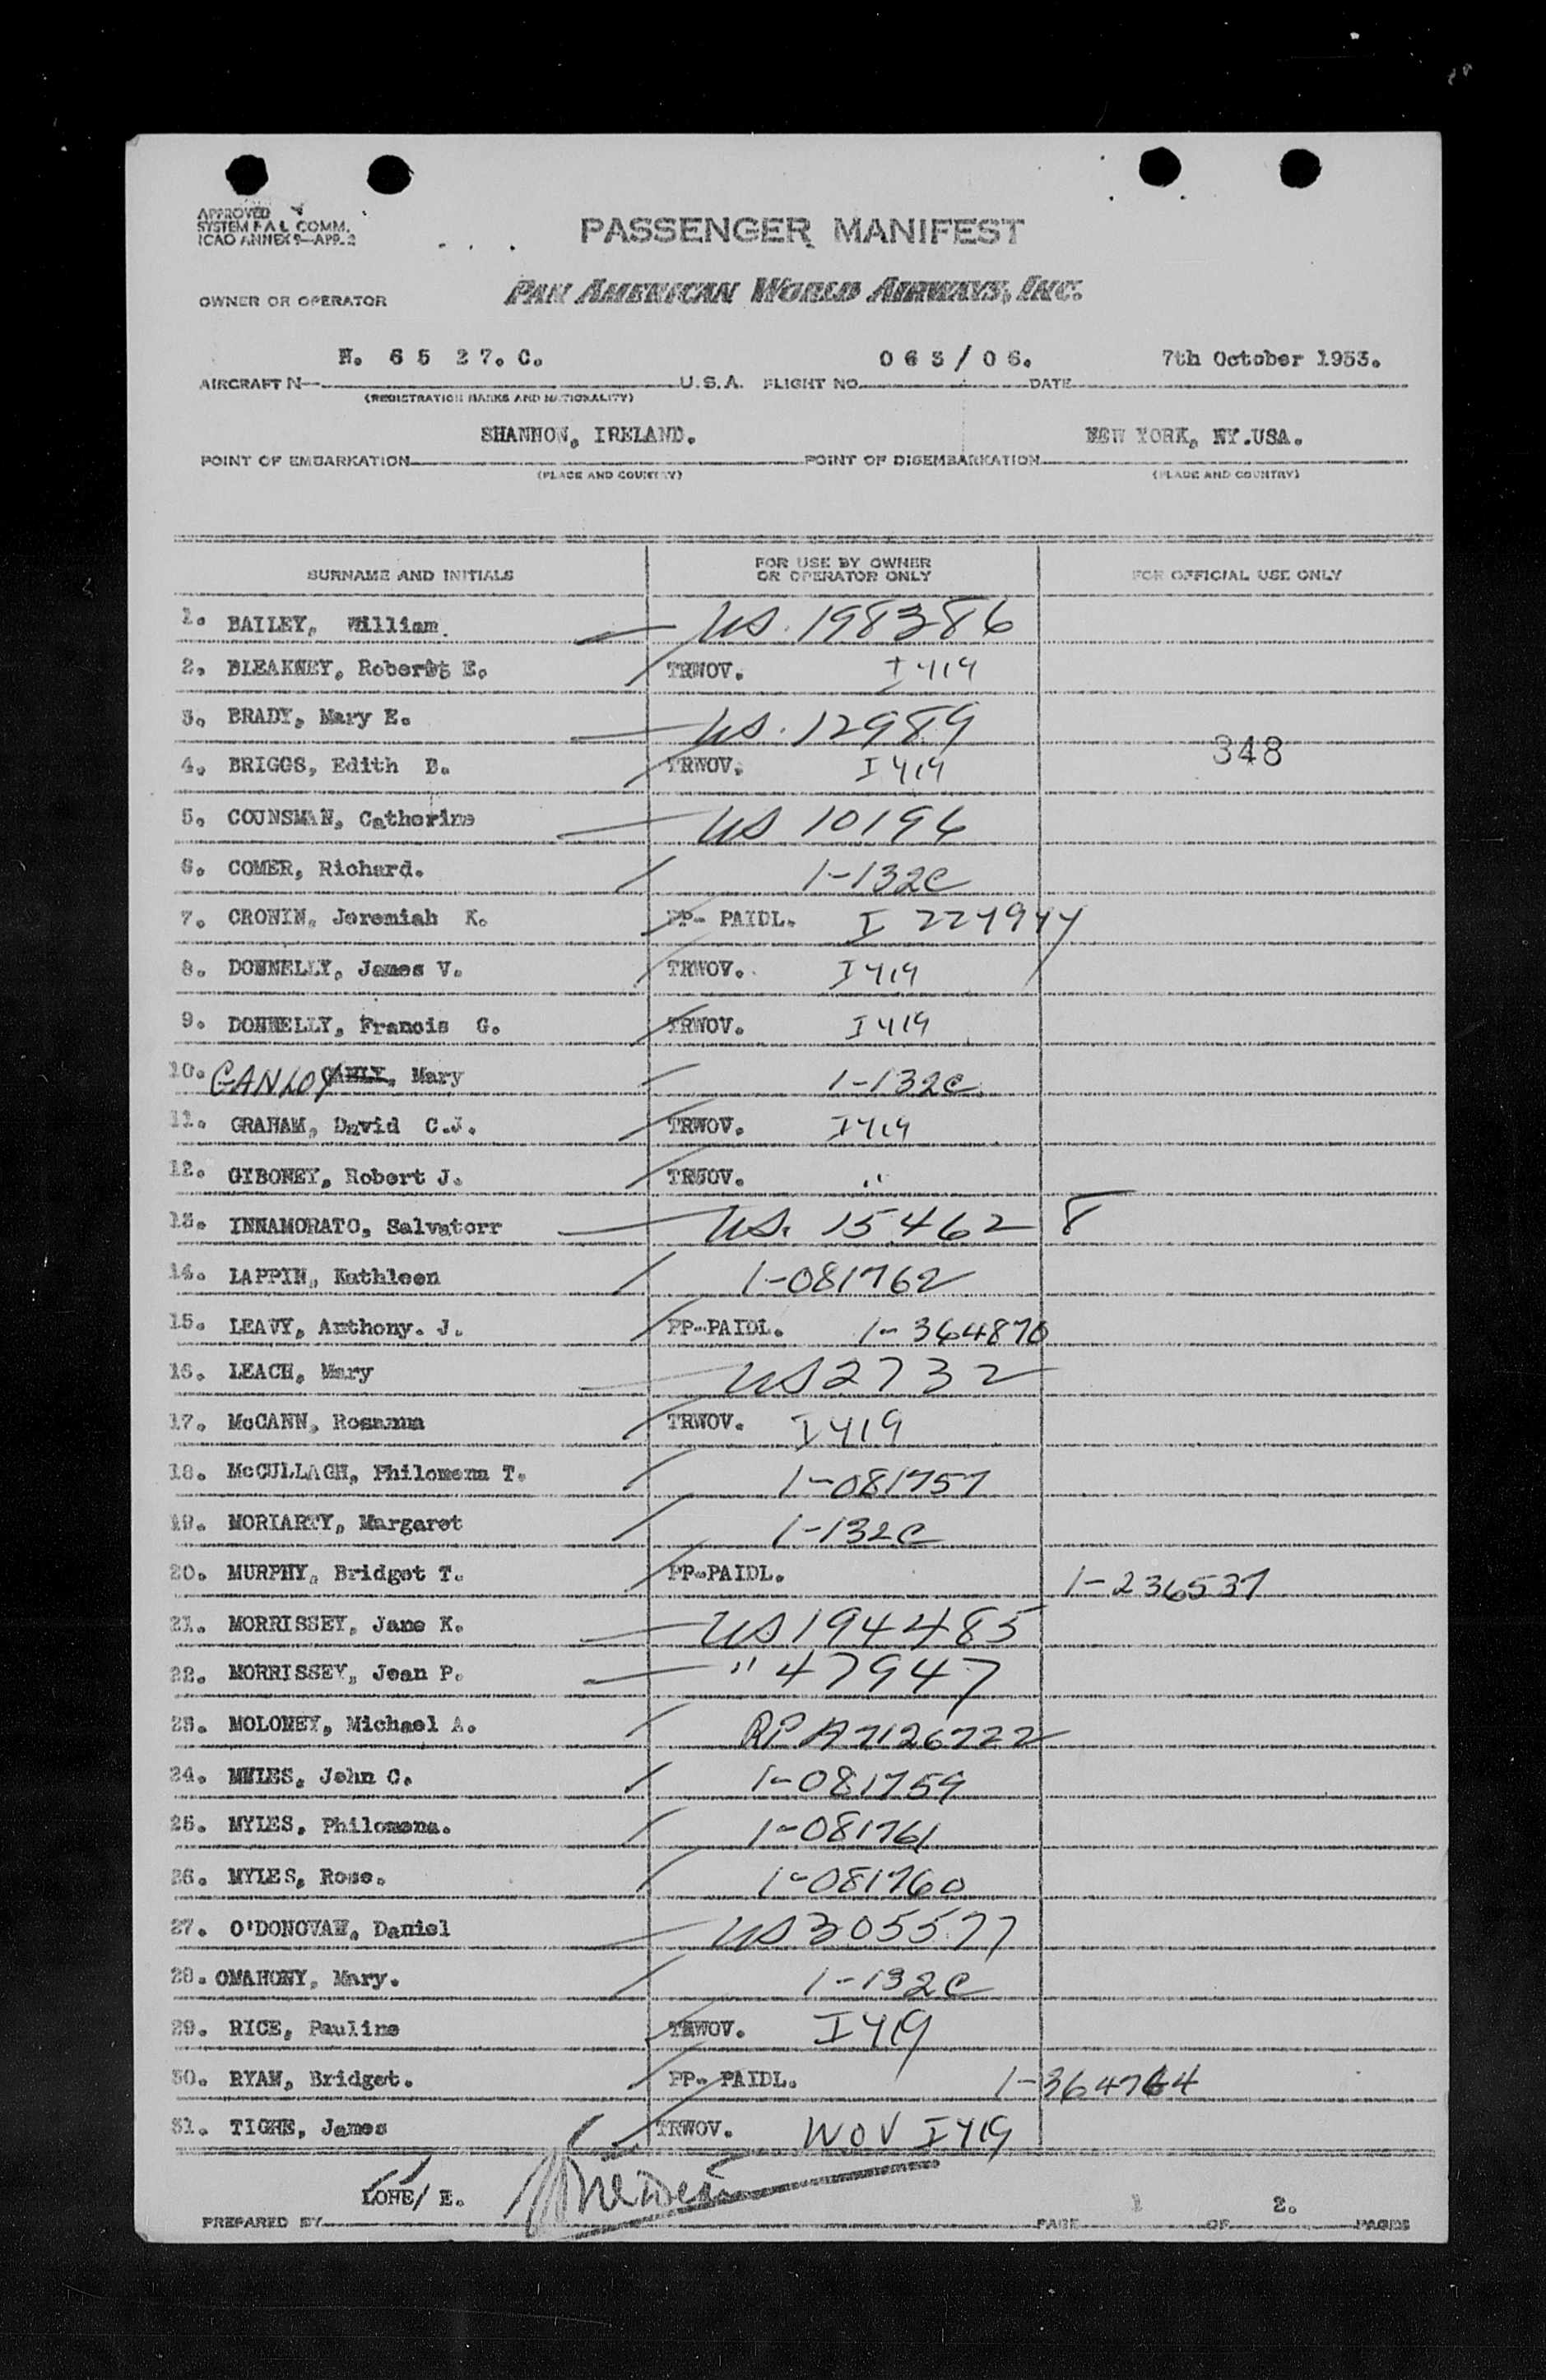 APPROVED
SYSTEM F A L COMM.
ICAO ANNEX 9—APP. 2
PASSENGER MANIFEST
OWNER OR OPERATOR PAN AMERICAN WORLD AIRWAYS, INC.
N. 6 5 2 7. C. 0 6 3 / 0 6. 7th October 1953.
AIRCRAFT N— U. S. A. FLIGHT NO. DATE
(REGISTRATION MARKS AND NATIONALITY)
SHANNON, IRELAND. NEW YORK, NY.USA.
POINT OF EMBARKATION POINT OF DISEMBARKATION
(PLACE AND COUNTRY) (PLACE AND COUNTRY)
SURNAME AND INITIALS FOR USE BY OWNER OR OPERATOR ONLY FOR OFFICIAL USE ONLY
1. BAILEY, William. US. 198386
2. BLEAKNEY, Robert E. TRWOV. I 419
3. BRADY, Mary E. US. 12989
348
4. BRIGGS, Edith D. TRWOV. I 419
5. COUNSMAN, Catherine US 10196
6. COMER, Richard. 1-132C
7. CRONIN, Jeremiah K. PP- PAIDL. I 224944
8. DONNELLY, James V. TRWOV. I 419
9. DONNELLY, Francis G. TRWOV. I 419
10. GANLOY, Mary 1-132C
11. GRAHAM, David C.J. TRWOV. I 419
12. GIBONEY, Robert J. TRWOV. "
13. INNAMORATO, Salvatorr US. 15462 8
14. LAPPIN, Kathleen 1-081762
15. LEAVY, Anthony. J. PP-PAIDL. 1-364870
16. LEACH, Mary US 2732
17. McCANN, Rosanna TRWOV. I 419
18. McCULLAGH, Philomena T. 1-081757
19. MORIARTY, Margaret 1-132C
20. MURPHY, Bridget T. PP-PAIDL. 1-236537
21. MORRISSEY, Jane K. US 194485
22. MORRISSEY, Jean P. " 47947
23. MOLONEY, Michael A. RP A7126722
24. MYLES, John C. 1-081759
25. MYLES, Philomena. 1-081761
26. MYLES, Rose. 1-081760
27. O'DONOVAN, Daniel US 305577
28. OMAHONY, Mary. 1-132C
29. RICE, Pauline TRWOV. I 419
30. RYAN, Bridget. PP- PAIDL. 1-364764
31. TIGHE, James TRWOV. WOV I 419
LOHE/ E.
PREPARED BY PAGE 1 OF 2. PAGES